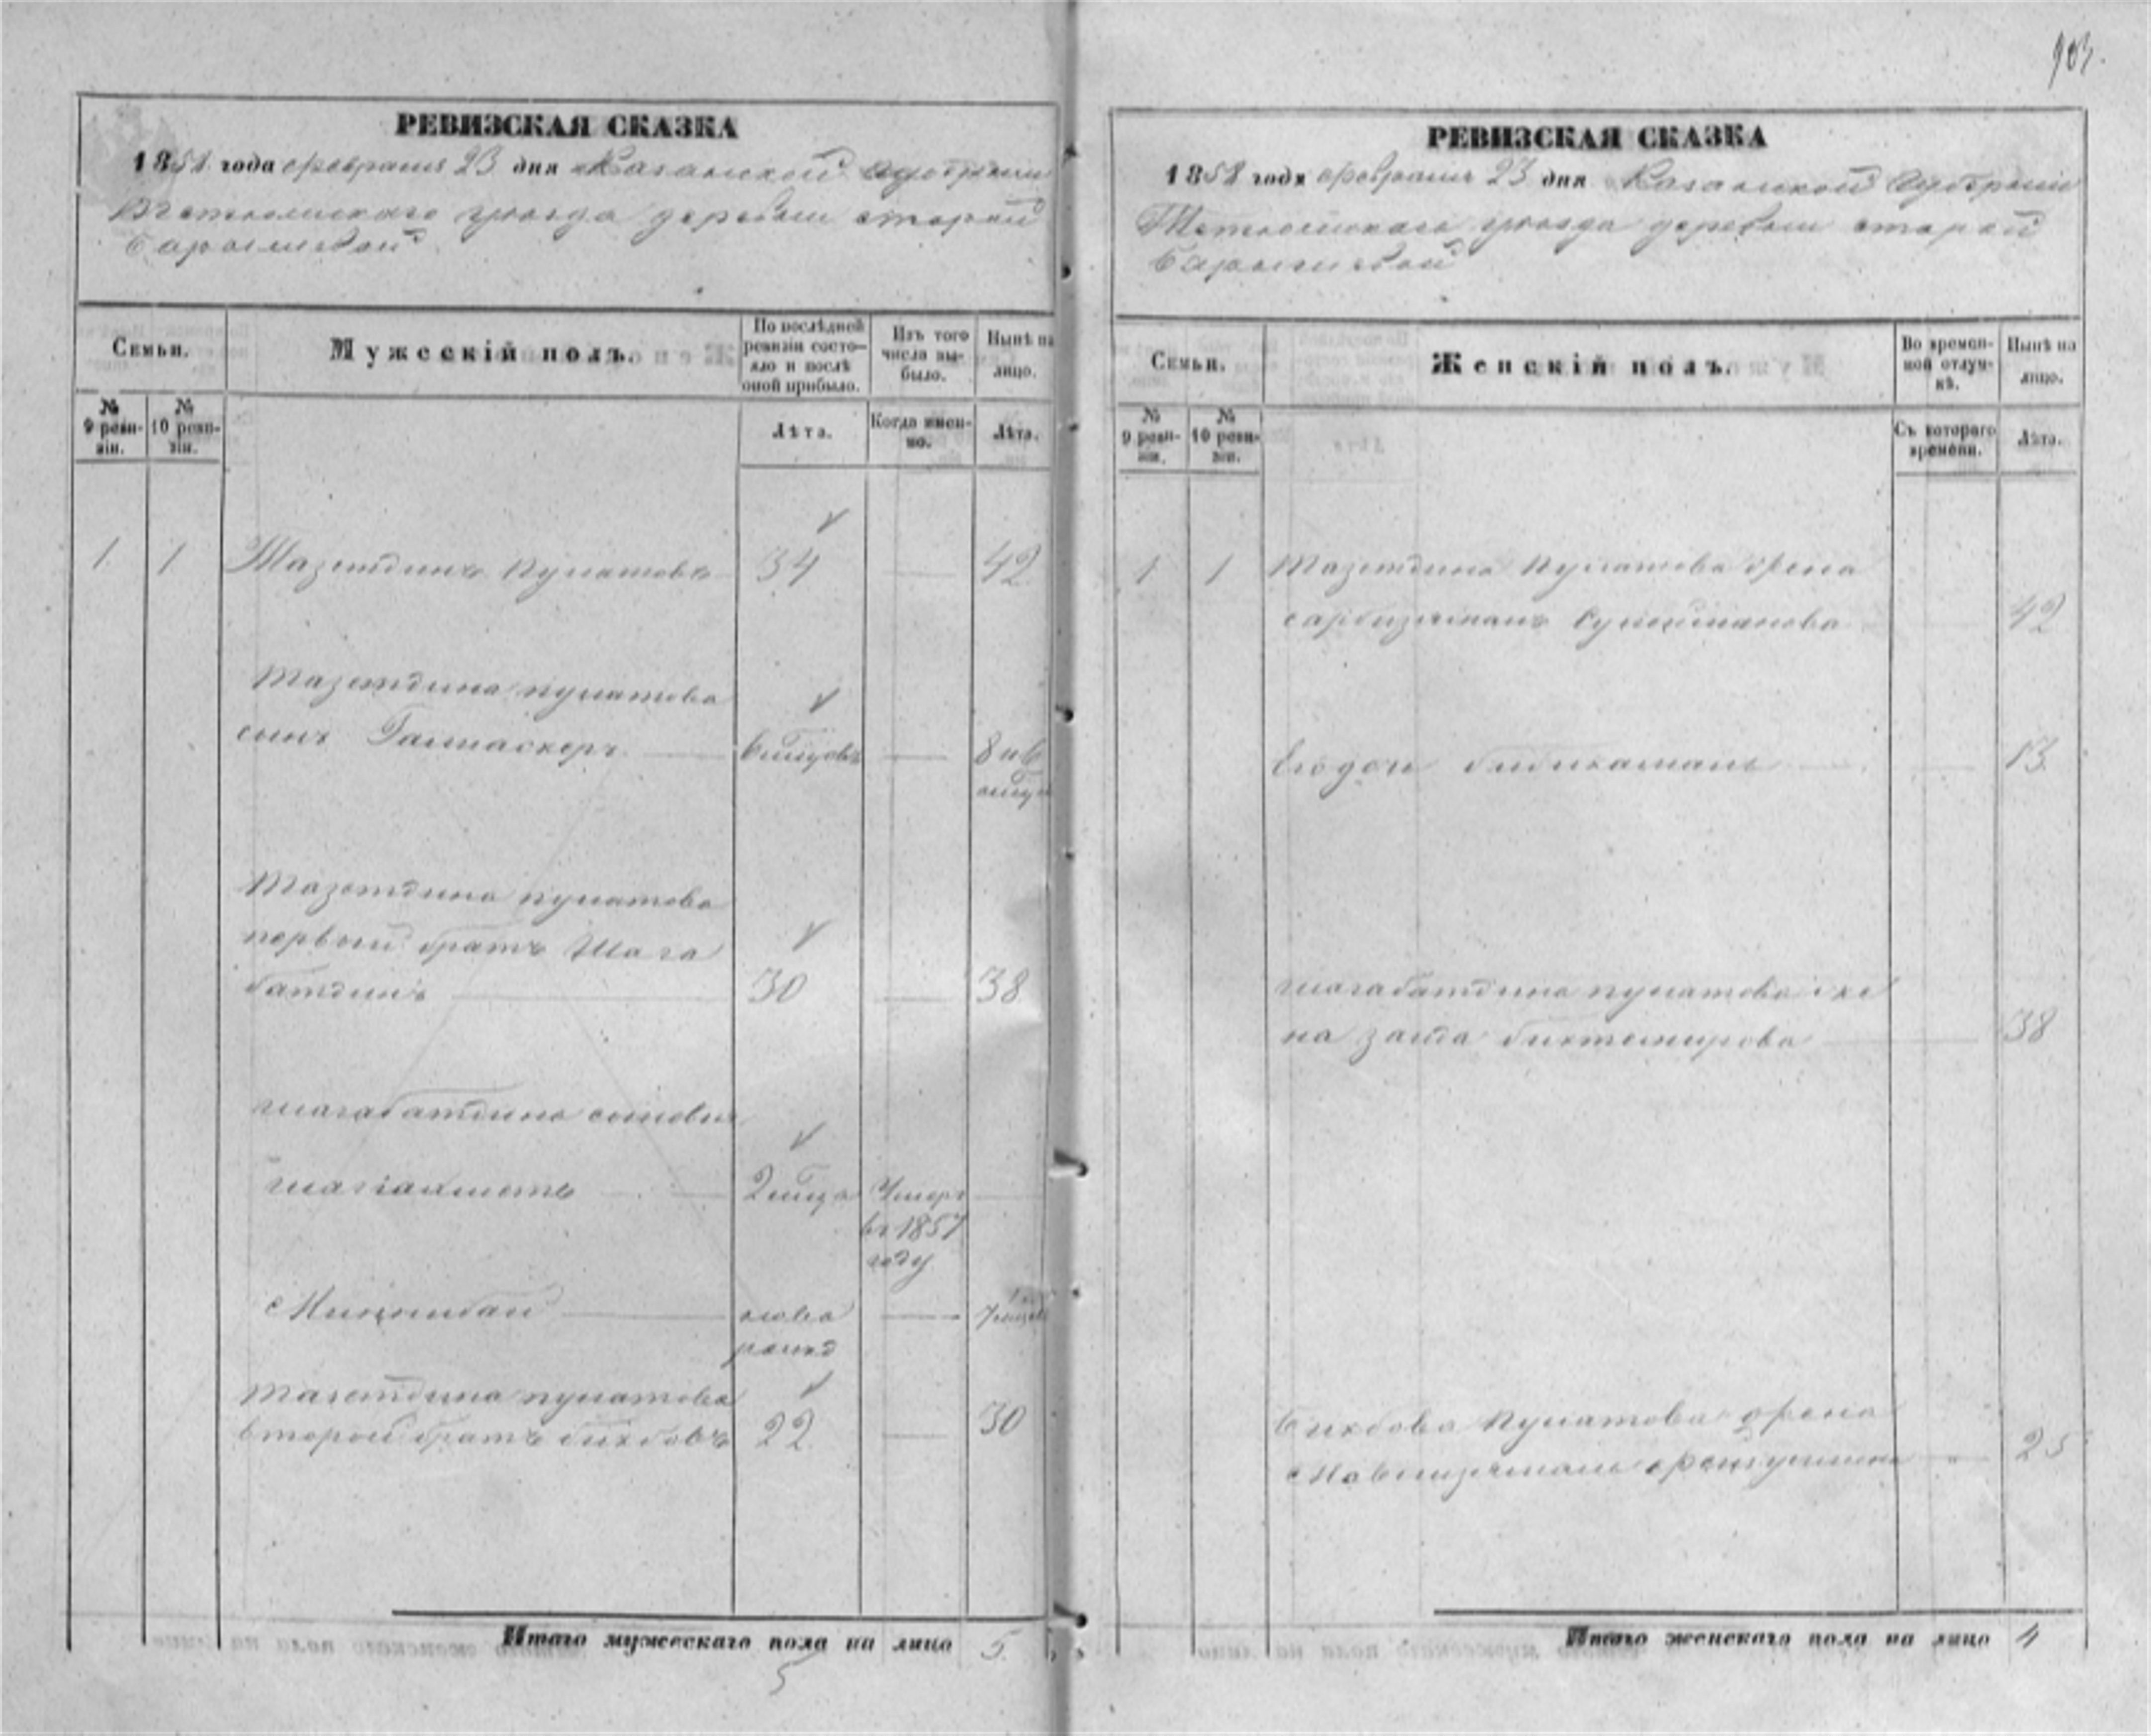 903.
РЕВИЗСКАЯ СКАЗКА
1858 года февраля 23 дня Казанской Губернии
Тетюшскаго уѣзда деревни старой
Барышевой
Семьи.
Мужескій полъ.
По послѣдней ревизіи состояло и послѣ оной прибыло.
Изъ того числа выбыло.
Нынѣ на лицо.
№ 9 ревизіи.
№ 10 ревизіи.
Лѣта.
Когда именно.
Лѣта.
1 1 Тазетдинъ Пулатовъ 34 42
Тазетдина пулатова
сынъ Галиаскеръ 8 и 6
Тазетдина пулатова
первый братъ Шага
батдинъ 30 38
шагабатдина сыновья
шагіахметъ 2 Умеръ
въ 1857
году
ново
рожд
Тазетдина пулатова
второй братъ бикбовъ 22 30
Итого мужескаго пола на лицо 5.
5
РЕВИЗСКАЯ СКАЗКА
1858 года февраля 23 дня Казанской Губерніи
Тетюшскаго уѣзда деревни старой
Барышевой
Семьи.
Женскій полъ.
Во временной отлучкѣ.
Нынѣ на лицо.
№ 9 ревизіи.
№ 10 ревизіи.
Съ котораго времени.
Лѣта.
1 1 Тазетдина Пулатова жена
сарбизямалъ Сулейманова 42
Ево дочь бибикамалъ 13
шагабатдина пулатова же
на заида биктемирова 38
Бикбова Пулатова жена
25
Итого женскаго пола на лицо 4